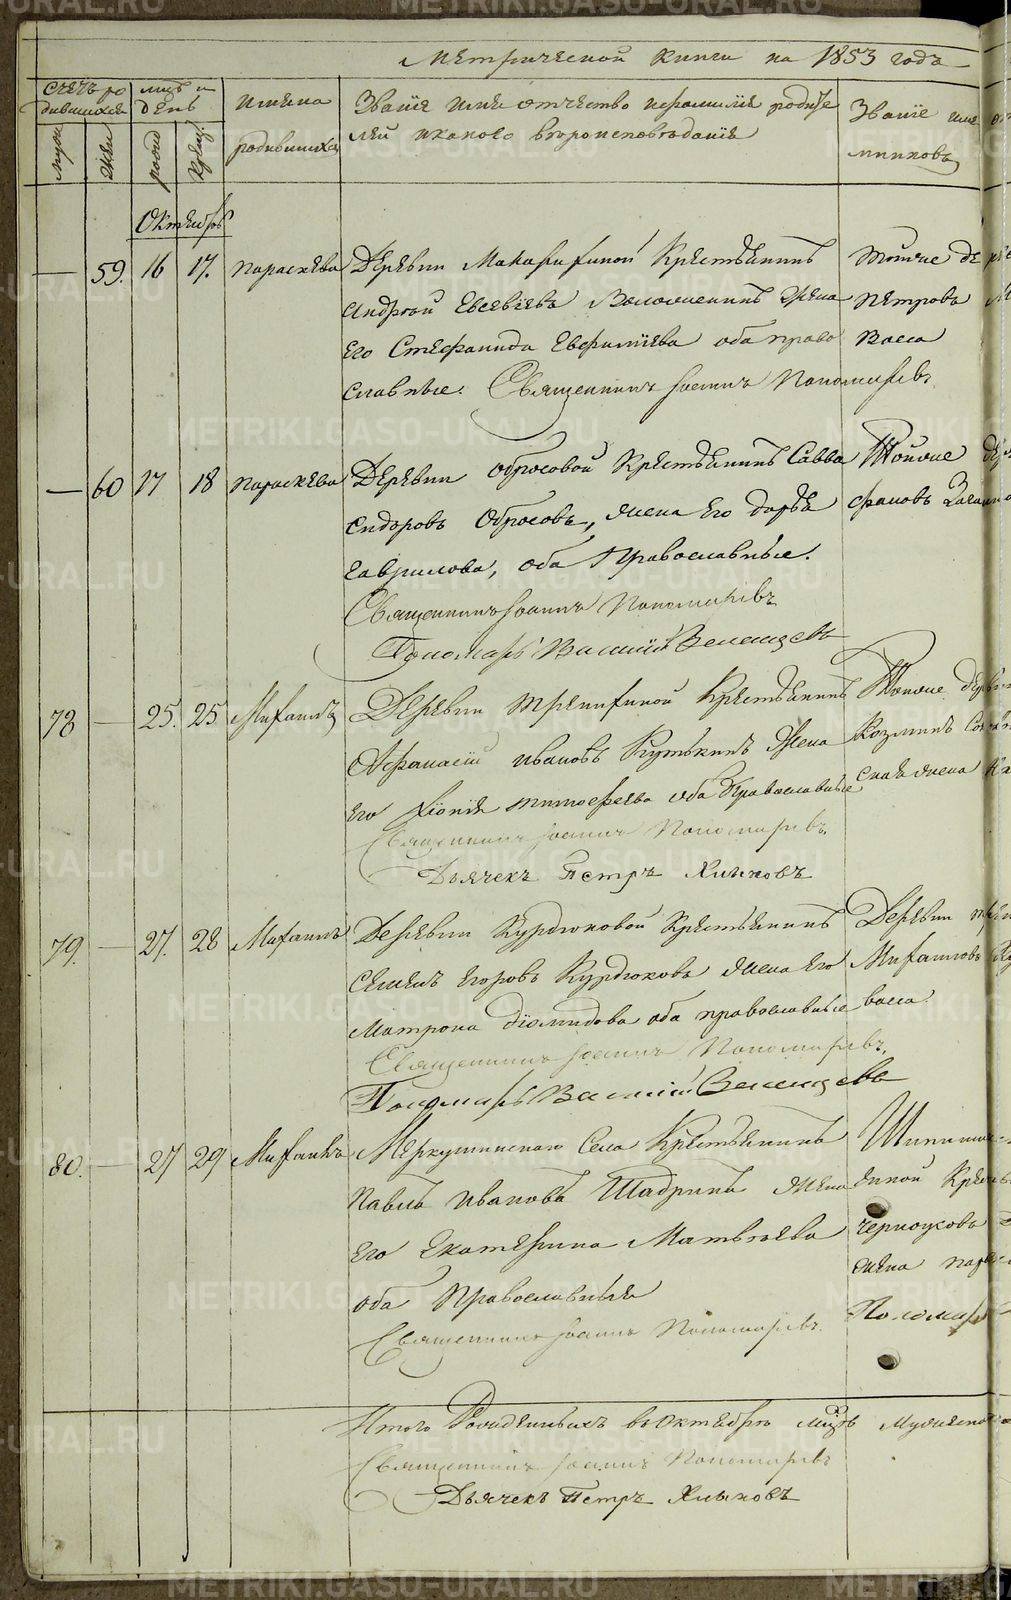 Метрической книги на 1853 годъ
Счетъ родившихся
муж.
жен.
мѣс. и день
рожд
крещ.
Имена родившихся
Званіе имя отчество и фамилія родителей и какого вѣроисповѣданія
Званіе имя от
Октябрь
— 59. 16 17. Параскева Деревни Махарихиной Крестьянинъ
Андрей Евсевіевъ жена
Его Стефанида Евфиміева оба право
славные. Священникъ Іоаннъ Пономаревъ
Тойже де
Петровъ
Васса
— 60 17 18 Параскева Деревни Обросовой Крестьянинъ Савва
Сидоровъ Обросовъ, жена Его Дарья
Гаврилова, оба Православные.
Священникъ Іоаннъ Пономаревъ
Пономарь Василій
Тойже дер
78 — 25. 25 Михаилъ Деревни Трепихиной Крестьянинъ
Афанасій Ивановъ Кутькинъ Жена
Его Хіонія Тимофеева оба Православные
Священникъ Іоаннъ Пономаревъ
Дьячекъ Петръ Хлыновъ
Тойже дерев
Козминъ
жена
79. — 27. 28 Михаилъ Деревни Курдюковой Крестьянинъ
Семенъ Егоровъ Курдюковъ жена Его
Матрона Діомидова оба православные
Священникъ Іоаннъ Пономаревъ.
Пономарь Василій
Деревни
Михаиловъ
васса
80. — 27 29 Михаилъ Меркушинскаго Села Крестьянинъ
Павелъ Ивановъ Шадринъ жена
Его Екатерина Матвѣева
оба Православныя
Священникъ Іоаннъ Пономаревъ.
Черноусовъ
жена
Пономарь
Итого Рожденныхъ въ Октябрѣ мцѣ Мужеска
Священникъ Іоаннъ Пономаревъ
Дьячекъ Петръ Хлыновъ
METRIKI.GASO-URAL.RU